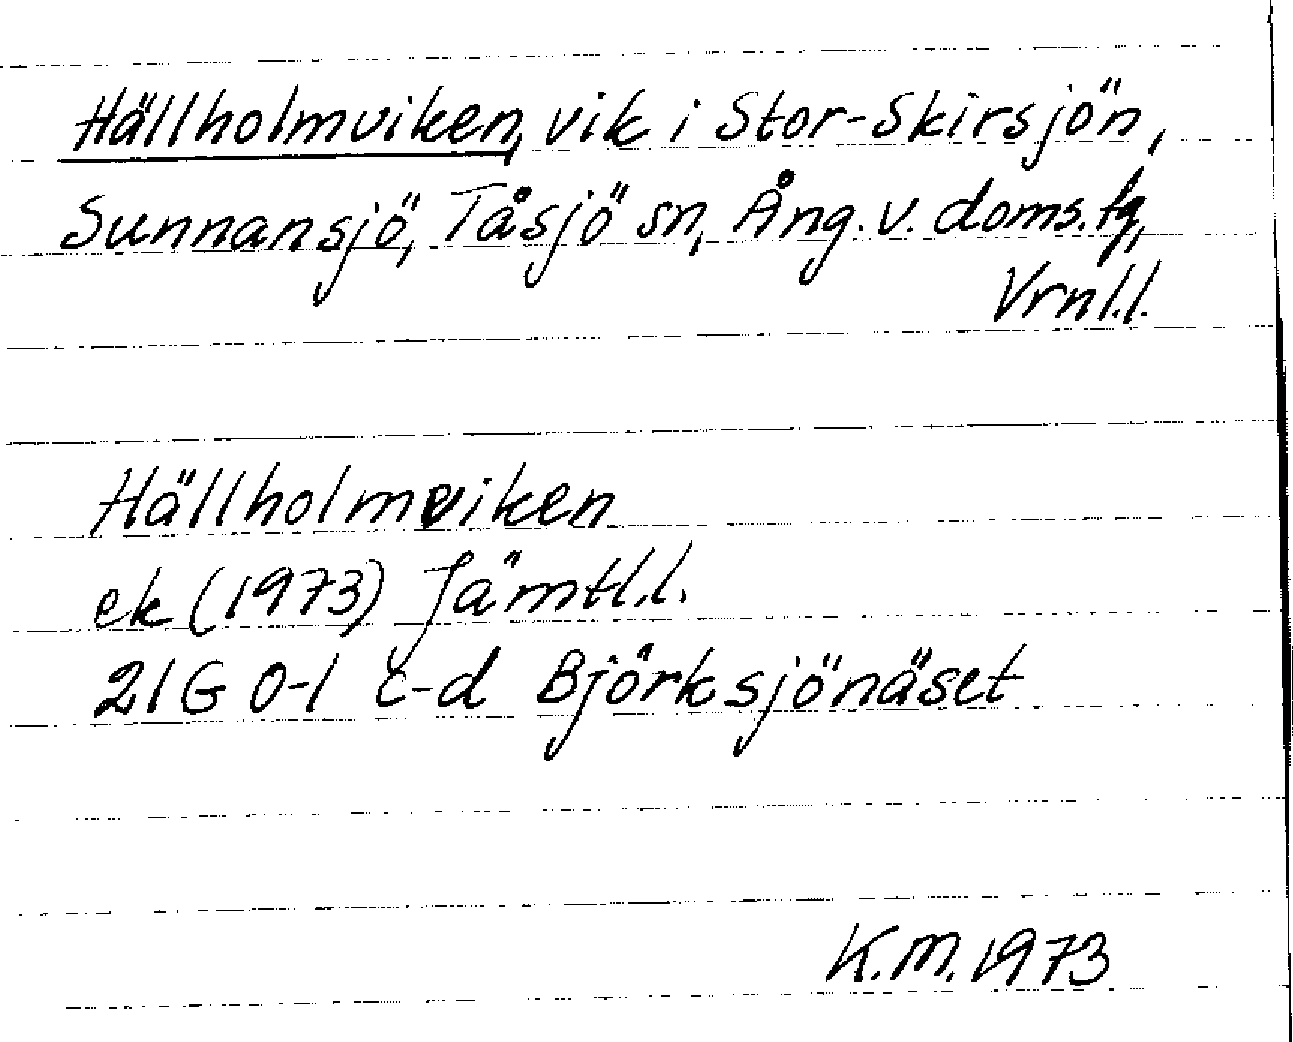 Hällholmviken, vik i Stor-Skirsjön,
Sunnansjö, Tåsjö sn, Ång. v. doms.tg,
Vrnl.l.
Hällholmviken
ek (1973) Jämtl.l.
21G 0-1 c-d Björksjönäset
K.M. 1973